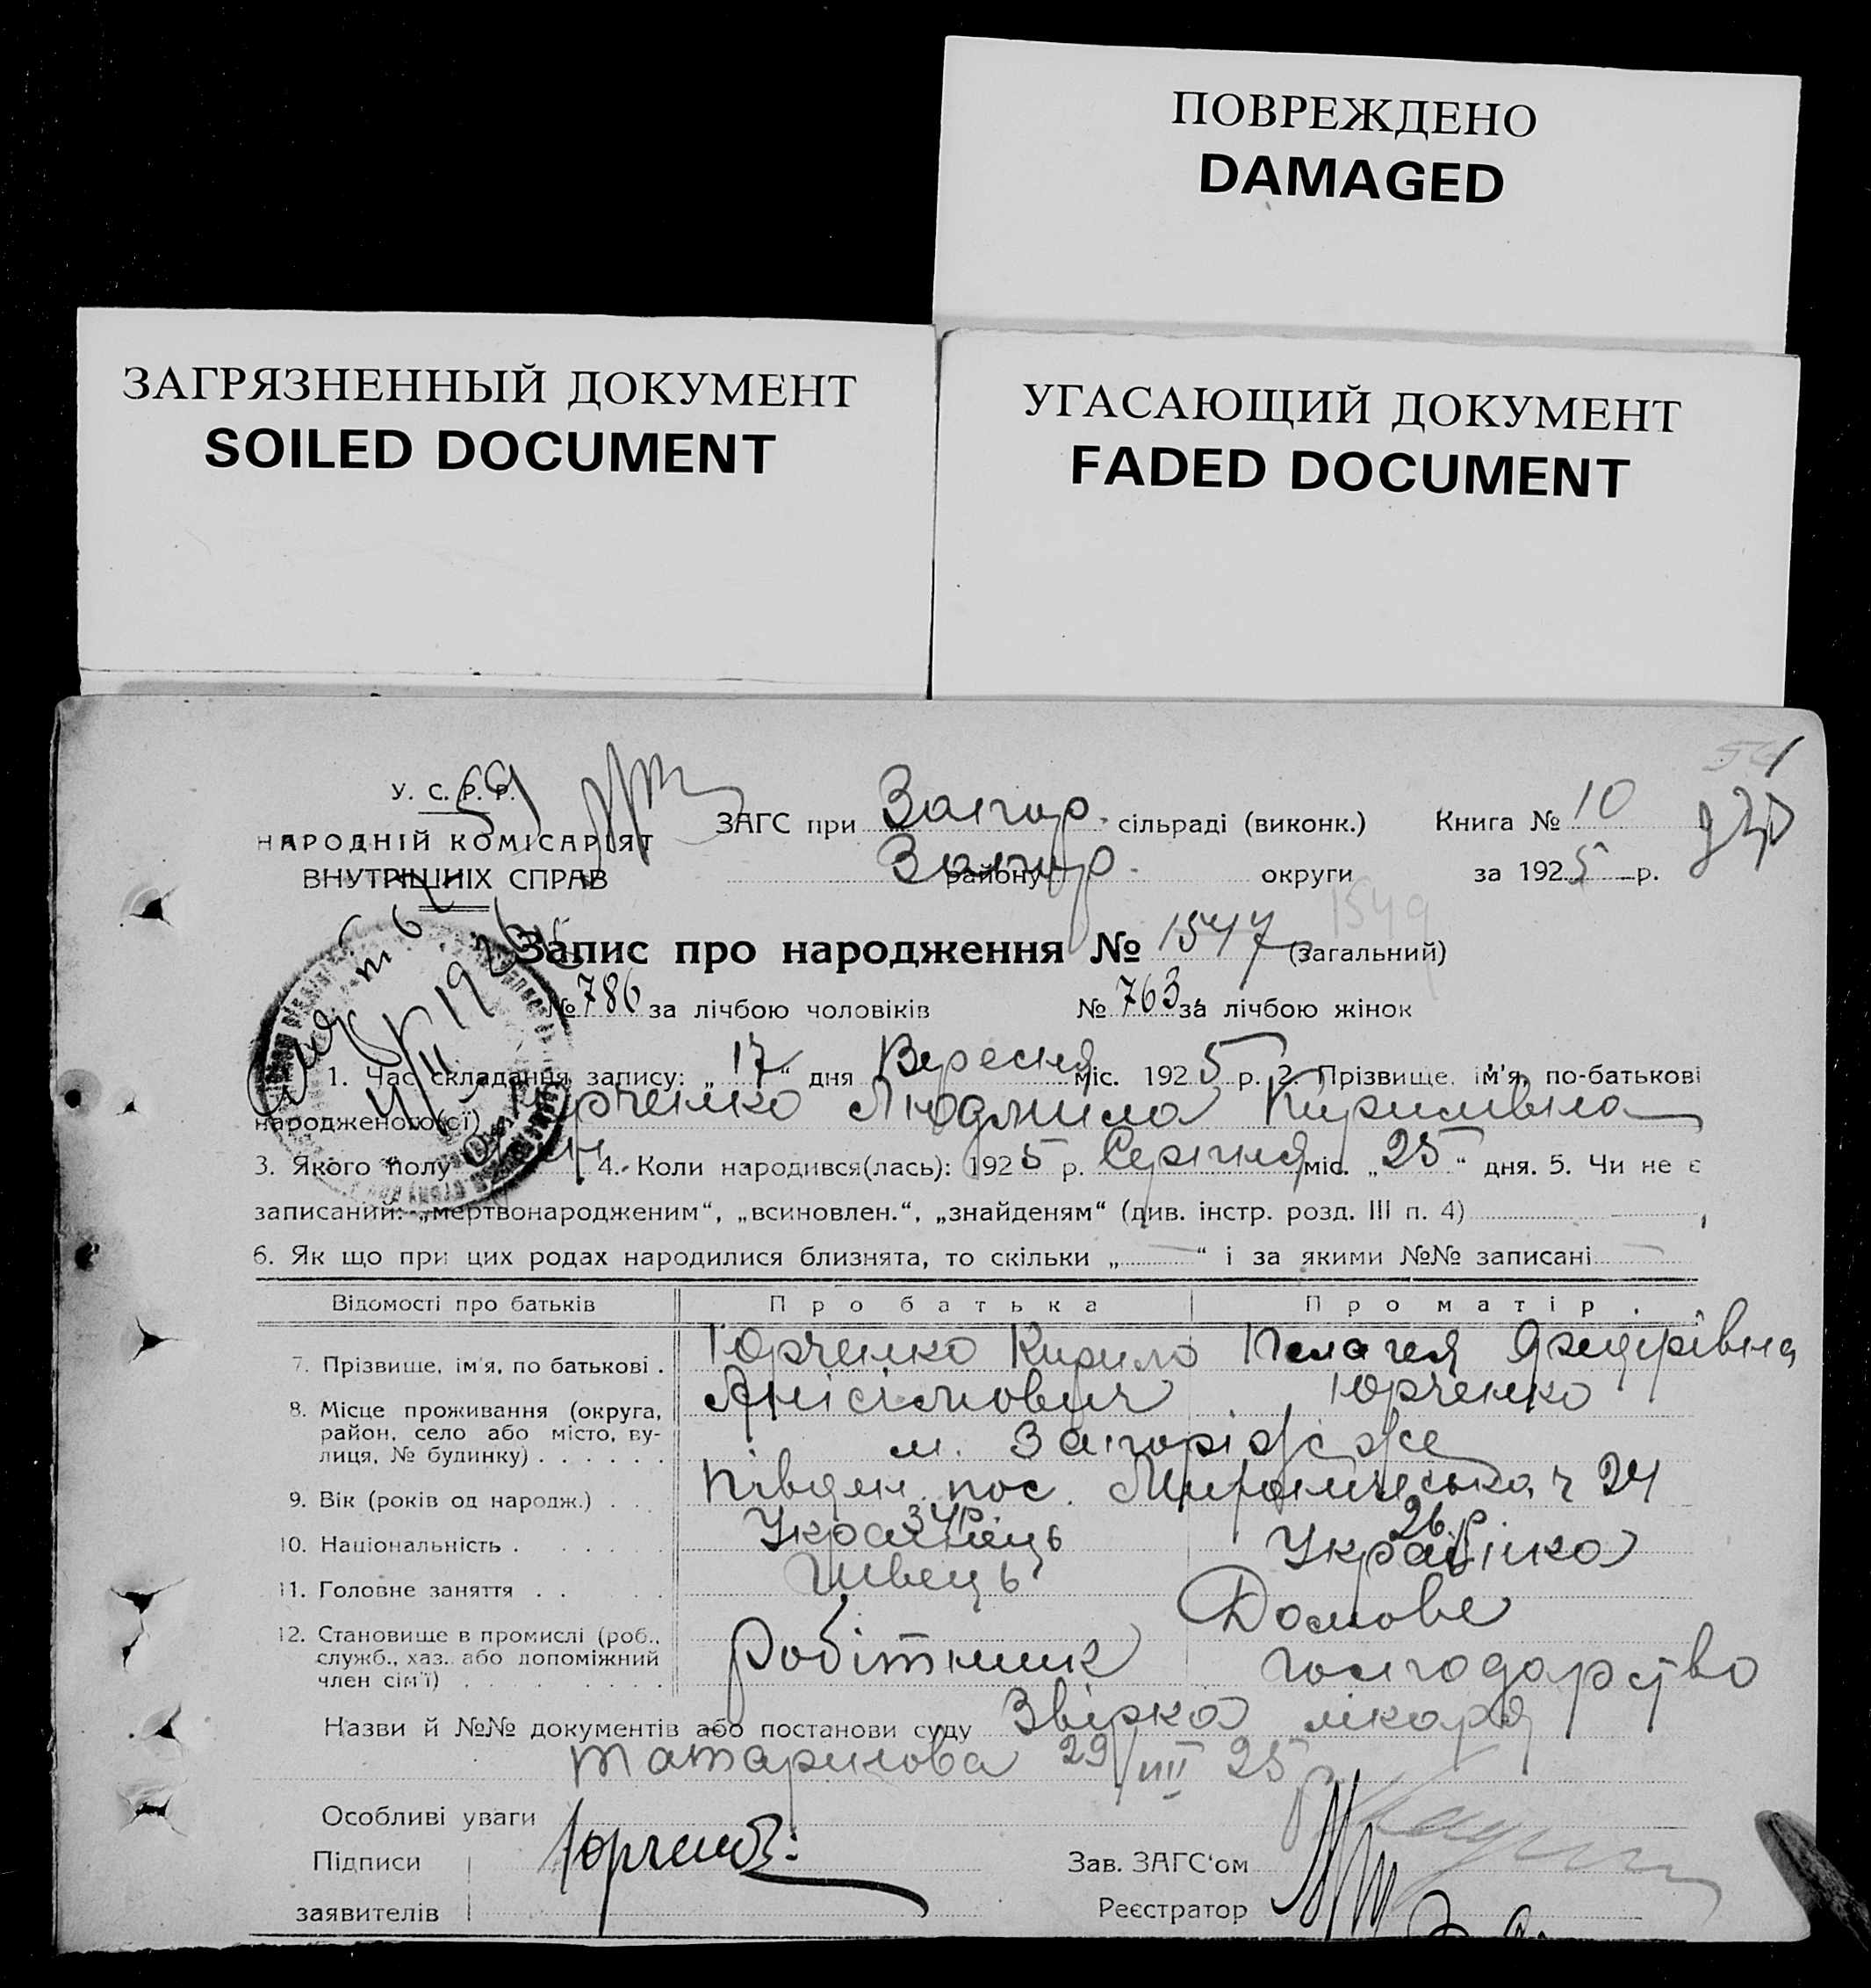 ПОВРЕЖДЕНО
DAMAGED
ЗАГРЯЗНЕННЫЙ ДОКУМЕНТ
SOILED DOCUMENT
УГАСАЮЩИЙ ДОКУМЕНТ
FADED DOCUMENT
У. С. Р. Р.
НАРОДНІЙ КОМІСАРІЯТ
ВНУТРІШНІХ СПРАВ
ЗАГС при Запор. сільраді (виконк.) Книга № 10
Запор. району округи за 1925 р.
Запис про народження № 1547 (загальний)
1549
№ 786 за лічбою чоловіків № 763 за лічбою жінок
1. Час складання запису: „17“ дня Вересня міс. 1925 р. 2. Прізвище, ім'я, по-батькові
народженого(сі) Юрченко Людмила Кирилівна
3. Якого полу жін 4. Коли народився(лась): 1925 р. Серпня міс. „25“ дня. 5. Чи не є
записаний: „мертвонародженим“, „всиновлен.“, „знайденям“ (див. інстр. розд. III п. 4)
6. Як що при цих родах народилися близнята, то скільки „ “ і за якими №№ записані
Відомості про батьків Про батька Про матір.
7. Прізвище, ім'я, по батькові . Юрченко Кирило Пелагея Федерівна
Анісімович Юрченко
8. Місце проживання (округа, район, село або місто, вулиця, № будинку) . . . . . .
м. Запоріжже
Півден. пос. ч 24
9. Вік (років од народж.) . . 34 р 26 р
10. Національність . . . . . Українець Українка
11. Головне заняття . . . . Швець Домове
господарство
12. Становище в промислі (роб., служб., хаз. або допоміжний член сім'ї) . . . . . . . .
Робітник
Назви й №№ документів або постанови суду Звірка лікаря
Татаринова 29/VIII 25
Особливі уваги
Підписи Юрченко
заявителів
Зав. ЗАГС'ом
Реєстратор